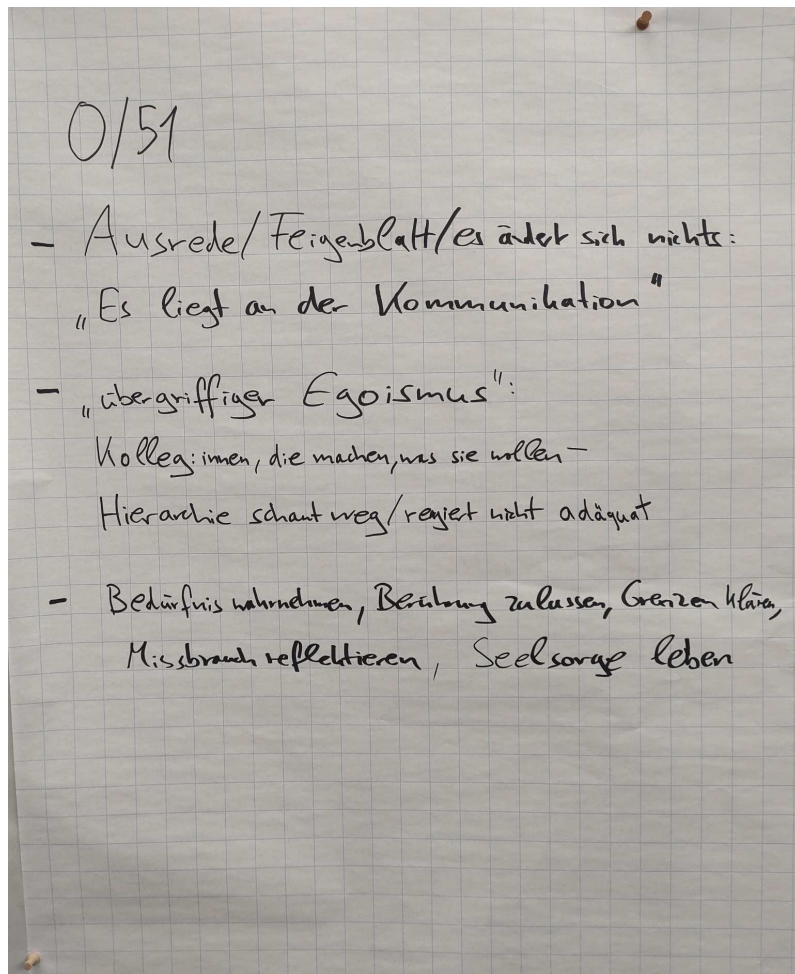 0/51
- Ausrede/Feigenblatt/es ändert sich nichts:
„Es liegt an der Kommunikation"
- „übergriffiger Egoismus":
Kolleg:innen, die machen, was sie wollen -
Hierarchie schaut weg/regiert nicht adäquat
- Bedürfnis wahrnehmen, Berührung zulassen, Grenzen klären,
Missbrauch reflektieren, Seelsorge leben